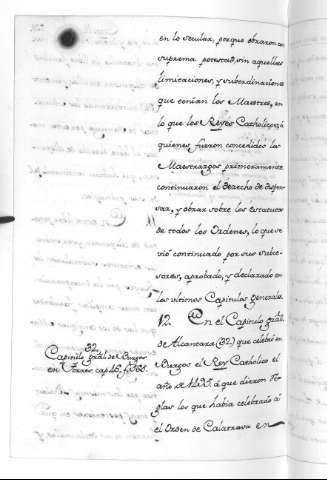 en lo secular, porque obraron con
suprema potestad, sin aquellas
limitaciones, y subordinaciones
que tenian los Maestres, en
lo que los Reyes Catholicos, á
quienes fueron concedidos los
Maestrazgos primeramente
continuaron el derecho de dispen-
sar, y obrar sobre los estatutos
de todos los Ordenes, lo que se
vió continuado por sus subce-
sores, aprobado, y declarado en
los ultimos Capitulos generales.
12. En el Capitulo gral.
de Alcantara (32) que celebró en
Burgos el Rey Catholico el
año de á que dieron Re-
glas los que habia celebrado á
el Orden de Calatrava en
32.
Capitulo gral de Burgos
en Torres cap. 46. f. 365.